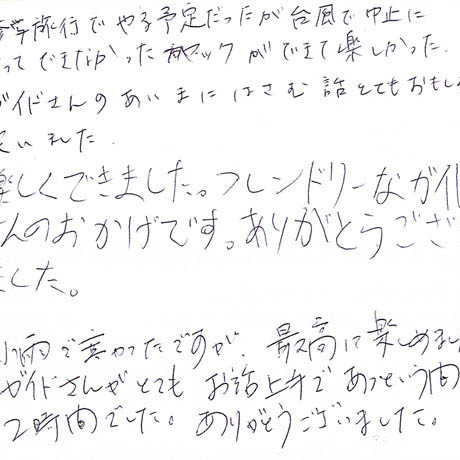 修学旅行でやる予定だったが台風で中止に
ってできなかったカヤックができて楽しかった。
ガイドさんのあいまにはさむ話とてもおもし
笑いました。
楽しくできました。フレンドリーなガイド
さんのおかげです。ありがとうござ
ました。
小雨で寒かったですが、最高に楽しめまし
ガイドさんがとても お話上手で あっという間
2時間でした。ありがとうございました。